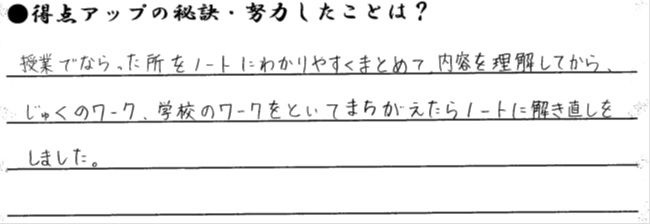 ●得点アップの秘訣・努力したことは？
授業でならった所をノートにわかりやすくまとめて、内容を理解してから、
じゅくのワーク、学校のワークをといてまちがえたらノートに解き直しを
しました。